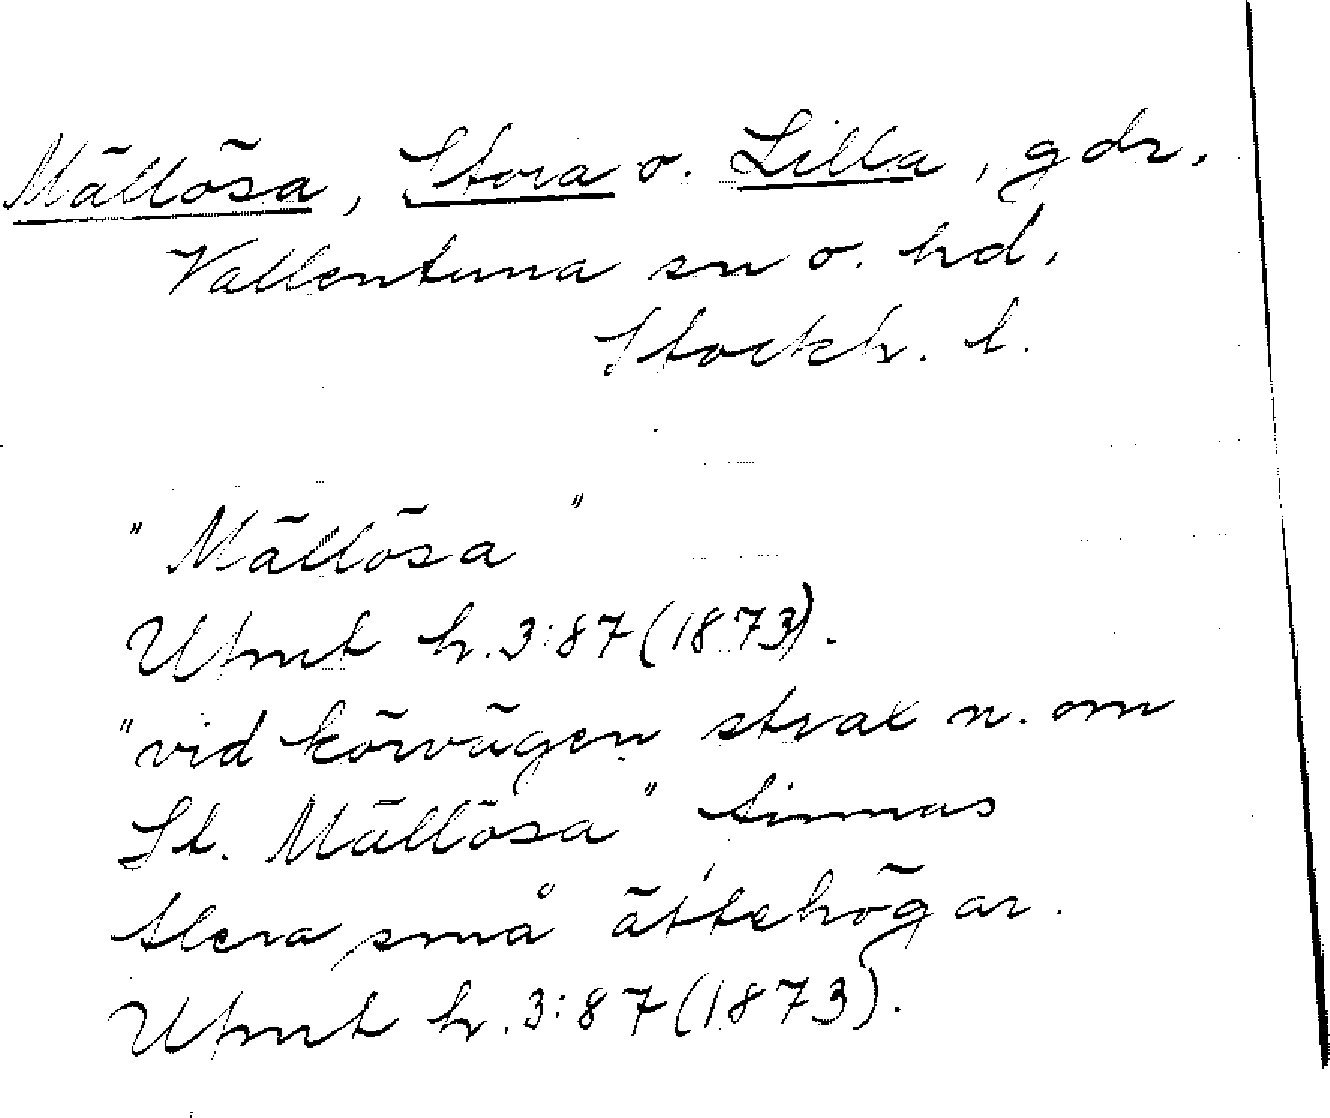 Mällösa, Stora o. Lilla, gdr,
Vallentuna sn o. hd,
Stockh. l.
"Mällösa"
Ufmt h. 3:87 (1873).
"vid körvägen strax n. om
St. Mällösa" finnas
flera små ättehögar.
Ufmt h. 3:87 (1873).